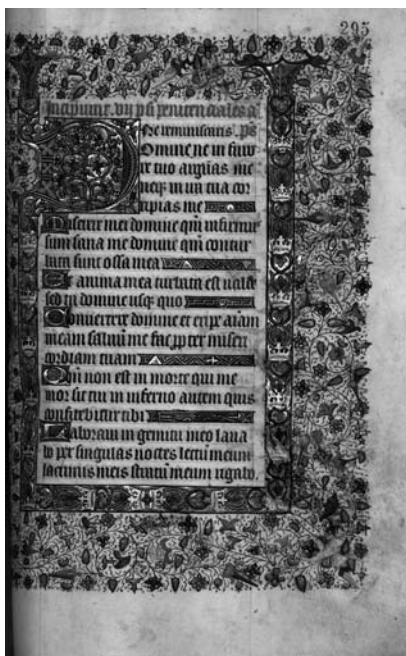 295
Incipiunt. vii ps̄ penitentiales añ
Ne reminiscaris. ps̄
Domine ne in furo
re tuo arguas me
neqȝ in ira tua cor
ripias me
Miserere mei domine qm̄ infirmus
sum sana me domine qm̄ contur
bata sunt ossa mea
Et anima mea turbata est valde
sed tu domine usqȝ quo
Convertere domine et eripe aīam
meam salvū me fac ꝓpter miseri
cordiam tuam
Qm̄ non est in morte qui me
mor sit tui in inferno autem quis
confitebitur tibi
Laboravi in gemitu meo lava
bo per singulas noctes lectū meum
lacrimis meis stratū meum rigabo.